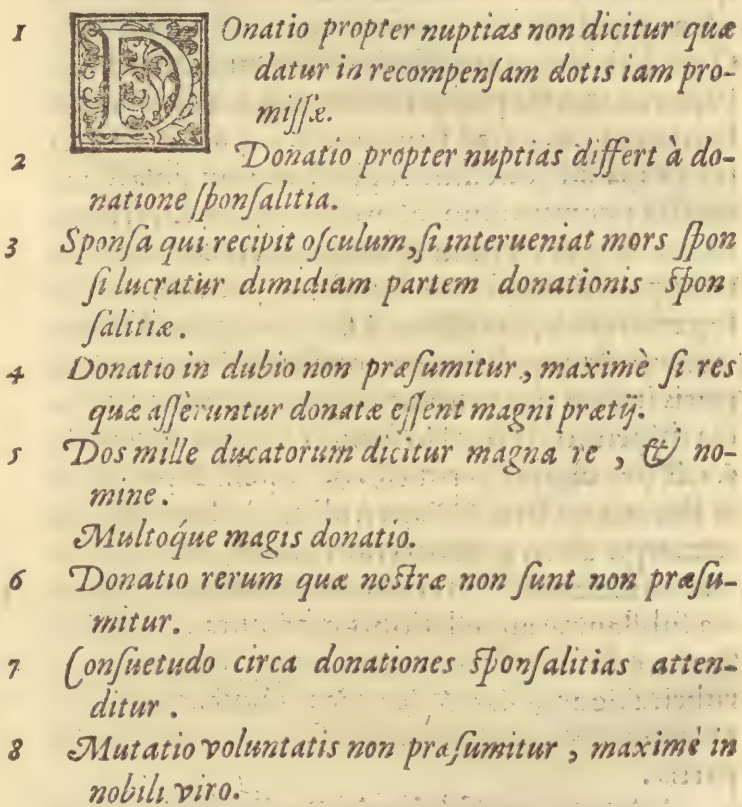 1 DOnatio propter nuptias non dicitur quæ
datur in recompenſam dotis iam pro-
miſſæ.
2 Donatio propter nuptias differt à do-
natione ſponſalitia.
3 Sponſa qui recipit oſculum, ſi interueniat mors ſpon
ſi lucratur dimidiam partem donationis ſpon
ſalitiæ.
4 Donatio in dubio non præſumitur, maximè ſi res
quæ aſſeruntur donatæ eſſent magni prætij.
5 Dos mille ducatorum dicitur magna re, & no-
mine.
Multoq́ue magis donatio.
6 Donatio rerum quæ noſtræ non ſunt non præſu-
mitur.
7 Conſuetudo circa donationes ſponſalitias atten-
ditur.
8 Mutatio voluntatis non præſumitur, maximè in
nobili viro.